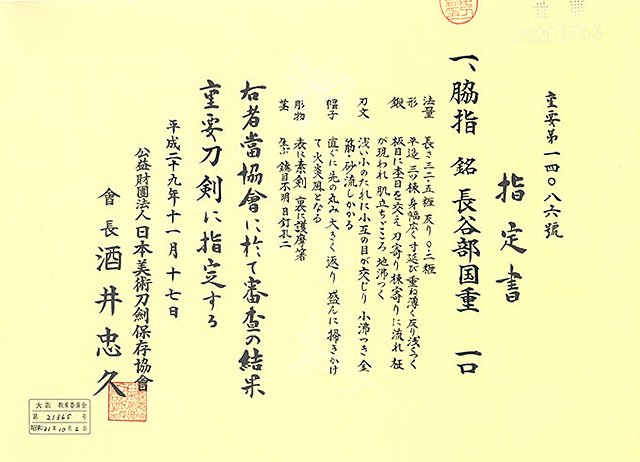 重要第一四〇八六號
指定書
一、脇指 銘 長谷部国重 一口
法量 長さ三一・五糎 反り〇・三糎
形 平造 三つ棟 身幅広く 寸延び 重ね薄く 反り浅くつく
鍛 板目に杢目を交え 刃寄り棟寄りに流れ 柾
が現われ 肌立ちごころ 地沸つく
刃文 浅い小のたれに小互の目が交じり 小沸つき 金
筋・砂流しかかる
帽子 直ぐに先小丸み 大きく返り 盛んに掃きかけ
て火炎風となる
彫物 表に素剣 裏に護摩箸
茎 生ぶ 鑢目不明 目釘孔二
右者當協會に於て審査の結果
重要刀剣に指定する
平成二十九年十一月十七日
公益財團法人日本美術刀劍保存協會
會長 酒井忠久
大阪 教育委員会
第 21365 号
昭和31年10月2日